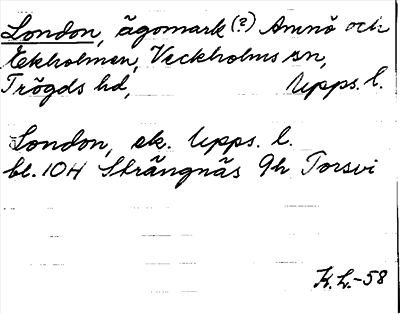 London, ägomark (?) Arnnö och
Ekholmen, Veckholms sn,
Trögds hd, Upps. l.
London, ek. Upps. l.
bl. 104 Strängnäs 9h Torsvi
K.L.-58